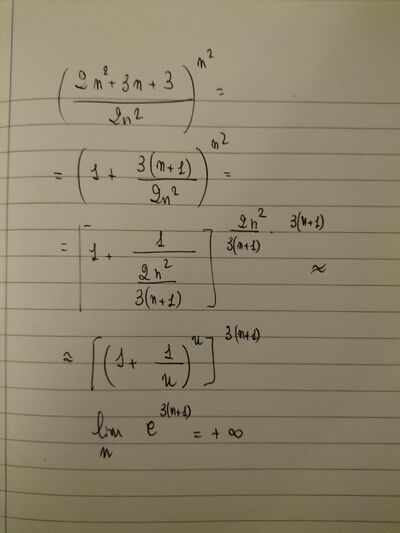 ((2n²+3n+3)/(2n²))^(n²) =
= (1 + (3(n+1))/(2n²))^(n²) =
= [1 + 1/((2n²)/(3(n+1)))]^((2n²)/(3(n+1)) · 3(n+1)) ≈
≈ [(1 + 1/u)^u]^(3(n+1))
lim_n e^(3(n+1)) = +∞